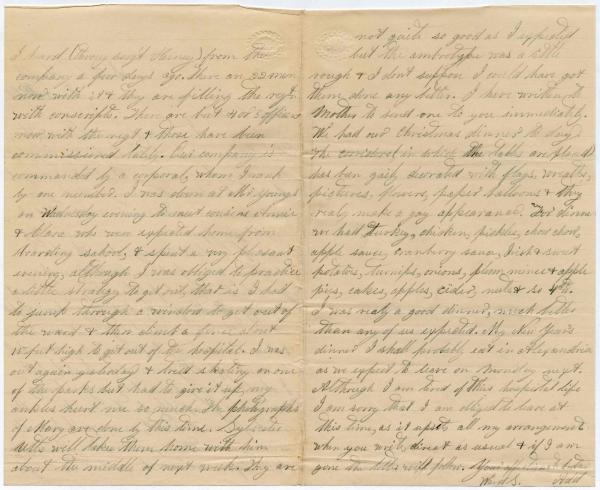 I heard (Percy say'd Harvey) from the
company a few days ago. There are 22 men
now with it & they are filling the regt.
with conscripts. There are but 4 or 5 officers
now with the regt & those have been
commissioned lately. Our company is
commanded by a corporal, whom I rank
by one number. I was down at Mr Youngs
on Wednesday evening to meet cousins Annie
& Clara who were expected home from
boarding school, & spent a very pleasant
evening, although I was obliged to practice
a little strategy to get out, that is I had
to jump through a window to get out of
the ward & then climb a fence about
10 feet high to get out of the hospital. I was
out again yesterday & tried skating on one
of the parks but had to give it up, my
ankles hurt me so much. The photographs
of Mary are done by this time. Sylvester
will take them home with him
about the middle of next week. They are
not quite so good as I expected
but the ambrotype was a little
rough & I don't suppose I could have got
them done any better. I have written to
Mother to send one to you immediately.
We had our Christmas dinner to day,
the in which the tables are placed
has been gaily decorated with flags, wreaths,
pictures, flowers, paper balloons & they
realy make a gay appearance. For dinner
we had Turkey, chicken, pickles, chow chow,
apple sauce, cranberry sauce, Irish & sweet
potatoes, turnips, onions, plum mince & apple
pies, cakes, apples, cider, nuts & so 4th.
I was realy a good dinner, much better
than any of us expected. My New Year's
dinner I shall probably eat in Alexandria
as we expect to leave on Monday next.
Although I am tired of this hospital life
I am sorry that I am obliged to leave at
this time, as it upsets all my arrangements
when you write, direct as usual & if I am
gone the letter will follow. Your affectionate
Ward S.